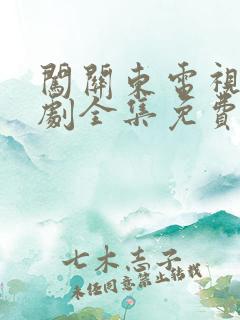 闖關東電視
劇全集免費
七木志子
未经同意禁止转载